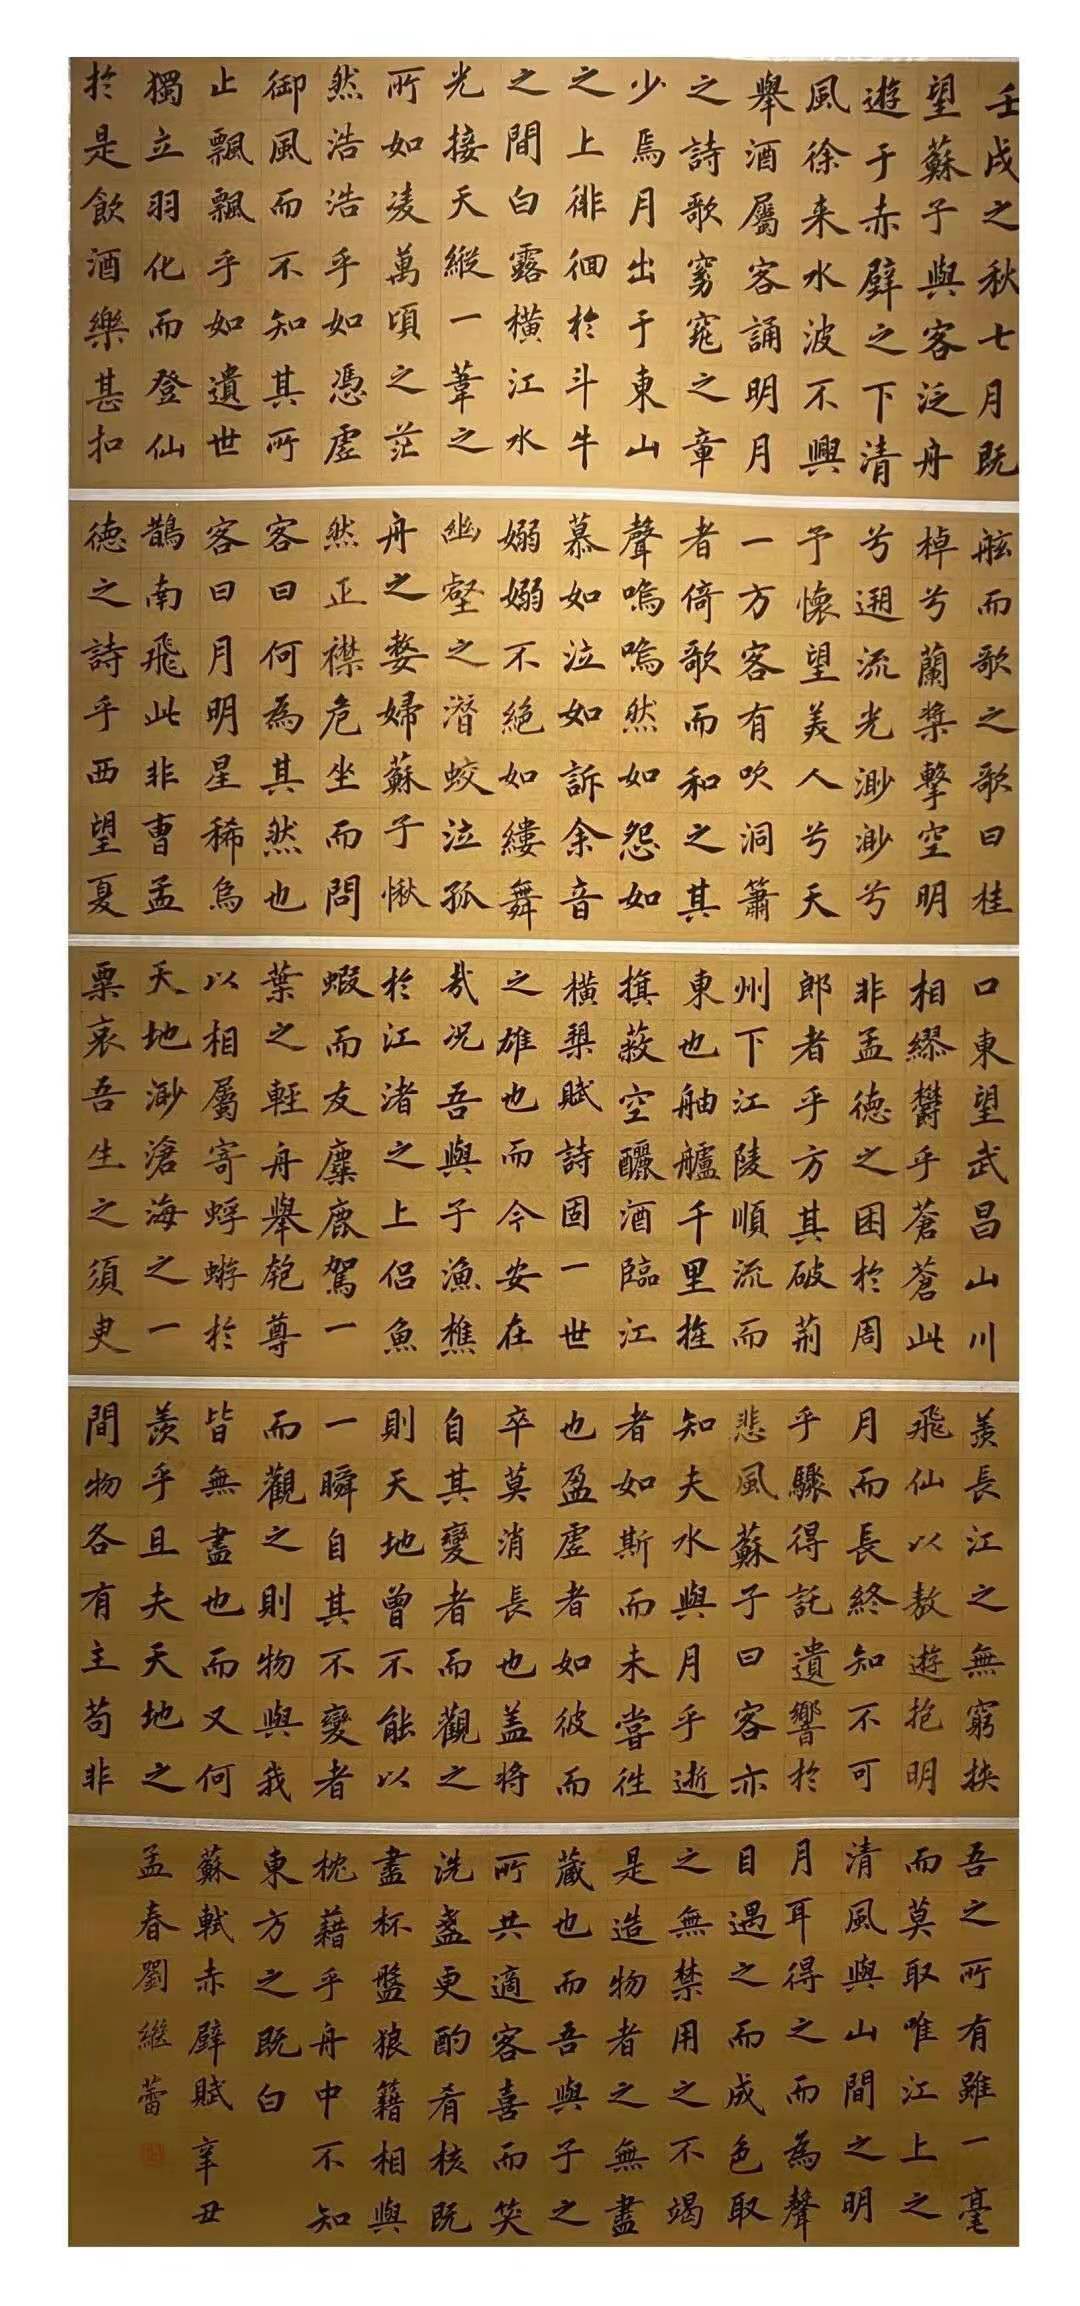 壬戌之秋七月既
望蘇子與客泛舟
遊于赤壁之下清
風徐来水波不興
舉酒屬客誦明月
之詩歌窈窕之章
少焉月出于東山
之上徘徊於斗牛
之間白露橫江水
光接天縱一葦之
所如凌萬頃之茫
然浩浩乎如憑虛
御風而不知其所
止飄飄乎如遺世
獨立羽化而登仙
於是飲酒樂甚扣
舷而歌之歌曰桂
棹兮蘭槳擊空明
兮遡流光渺渺兮
予懷望美人兮天
一方客有吹洞簫
者倚歌而和之其
聲嗚嗚然如怨如
慕如泣如訴余音
嫋嫋不絕如縷舞
幽壑之潛蛟泣孤
舟之嫠婦蘇子愀
然正襟危坐而問
客曰何為其然也
客曰月明星稀烏
鵲南飛此非曹孟
德之詩乎西望夏
口東望武昌山川
相繆鬱乎蒼蒼此
非孟德之困於周
郎者乎方其破荊
州下江陵順流而
東也舳艫千里旌
旗蔽空釃酒臨江
橫槊賦詩固一世
之雄也而今安在
哉况吾與子漁樵
於江渚之上侶魚
蝦而友麋鹿駕一
葉之輕舟舉匏尊
以相屬寄蜉蝣於
天地渺滄海之一
粟哀吾生之須臾
羨長江之無窮挾
飛仙以敖遊抱明
月而長終知不可
乎驟得託遺響於
悲風蘇子曰客亦
知夫水與月乎逝
者如斯而未嘗往
也盈虛者如彼而
卒莫消長也蓋將
自其變者而觀之
則天地曾不能以
一瞬自其不變者
而觀之則物與我
皆無盡也而又何
羨乎且夫天地之
間物各有主苟非
吾之所有雖一毫
而莫取唯江上之
清風與山間之明
月耳得之而為聲
目遇之而成色取
之無禁用之不竭
是造物者之無盡
藏也而吾與子之
所共適客喜而笑
洗盞更酌肴核既
盡杯盤狼籍相與
枕藉乎舟中不知
東方之既白
蘇軾赤壁賦 辛丑
孟春劉繼蕾